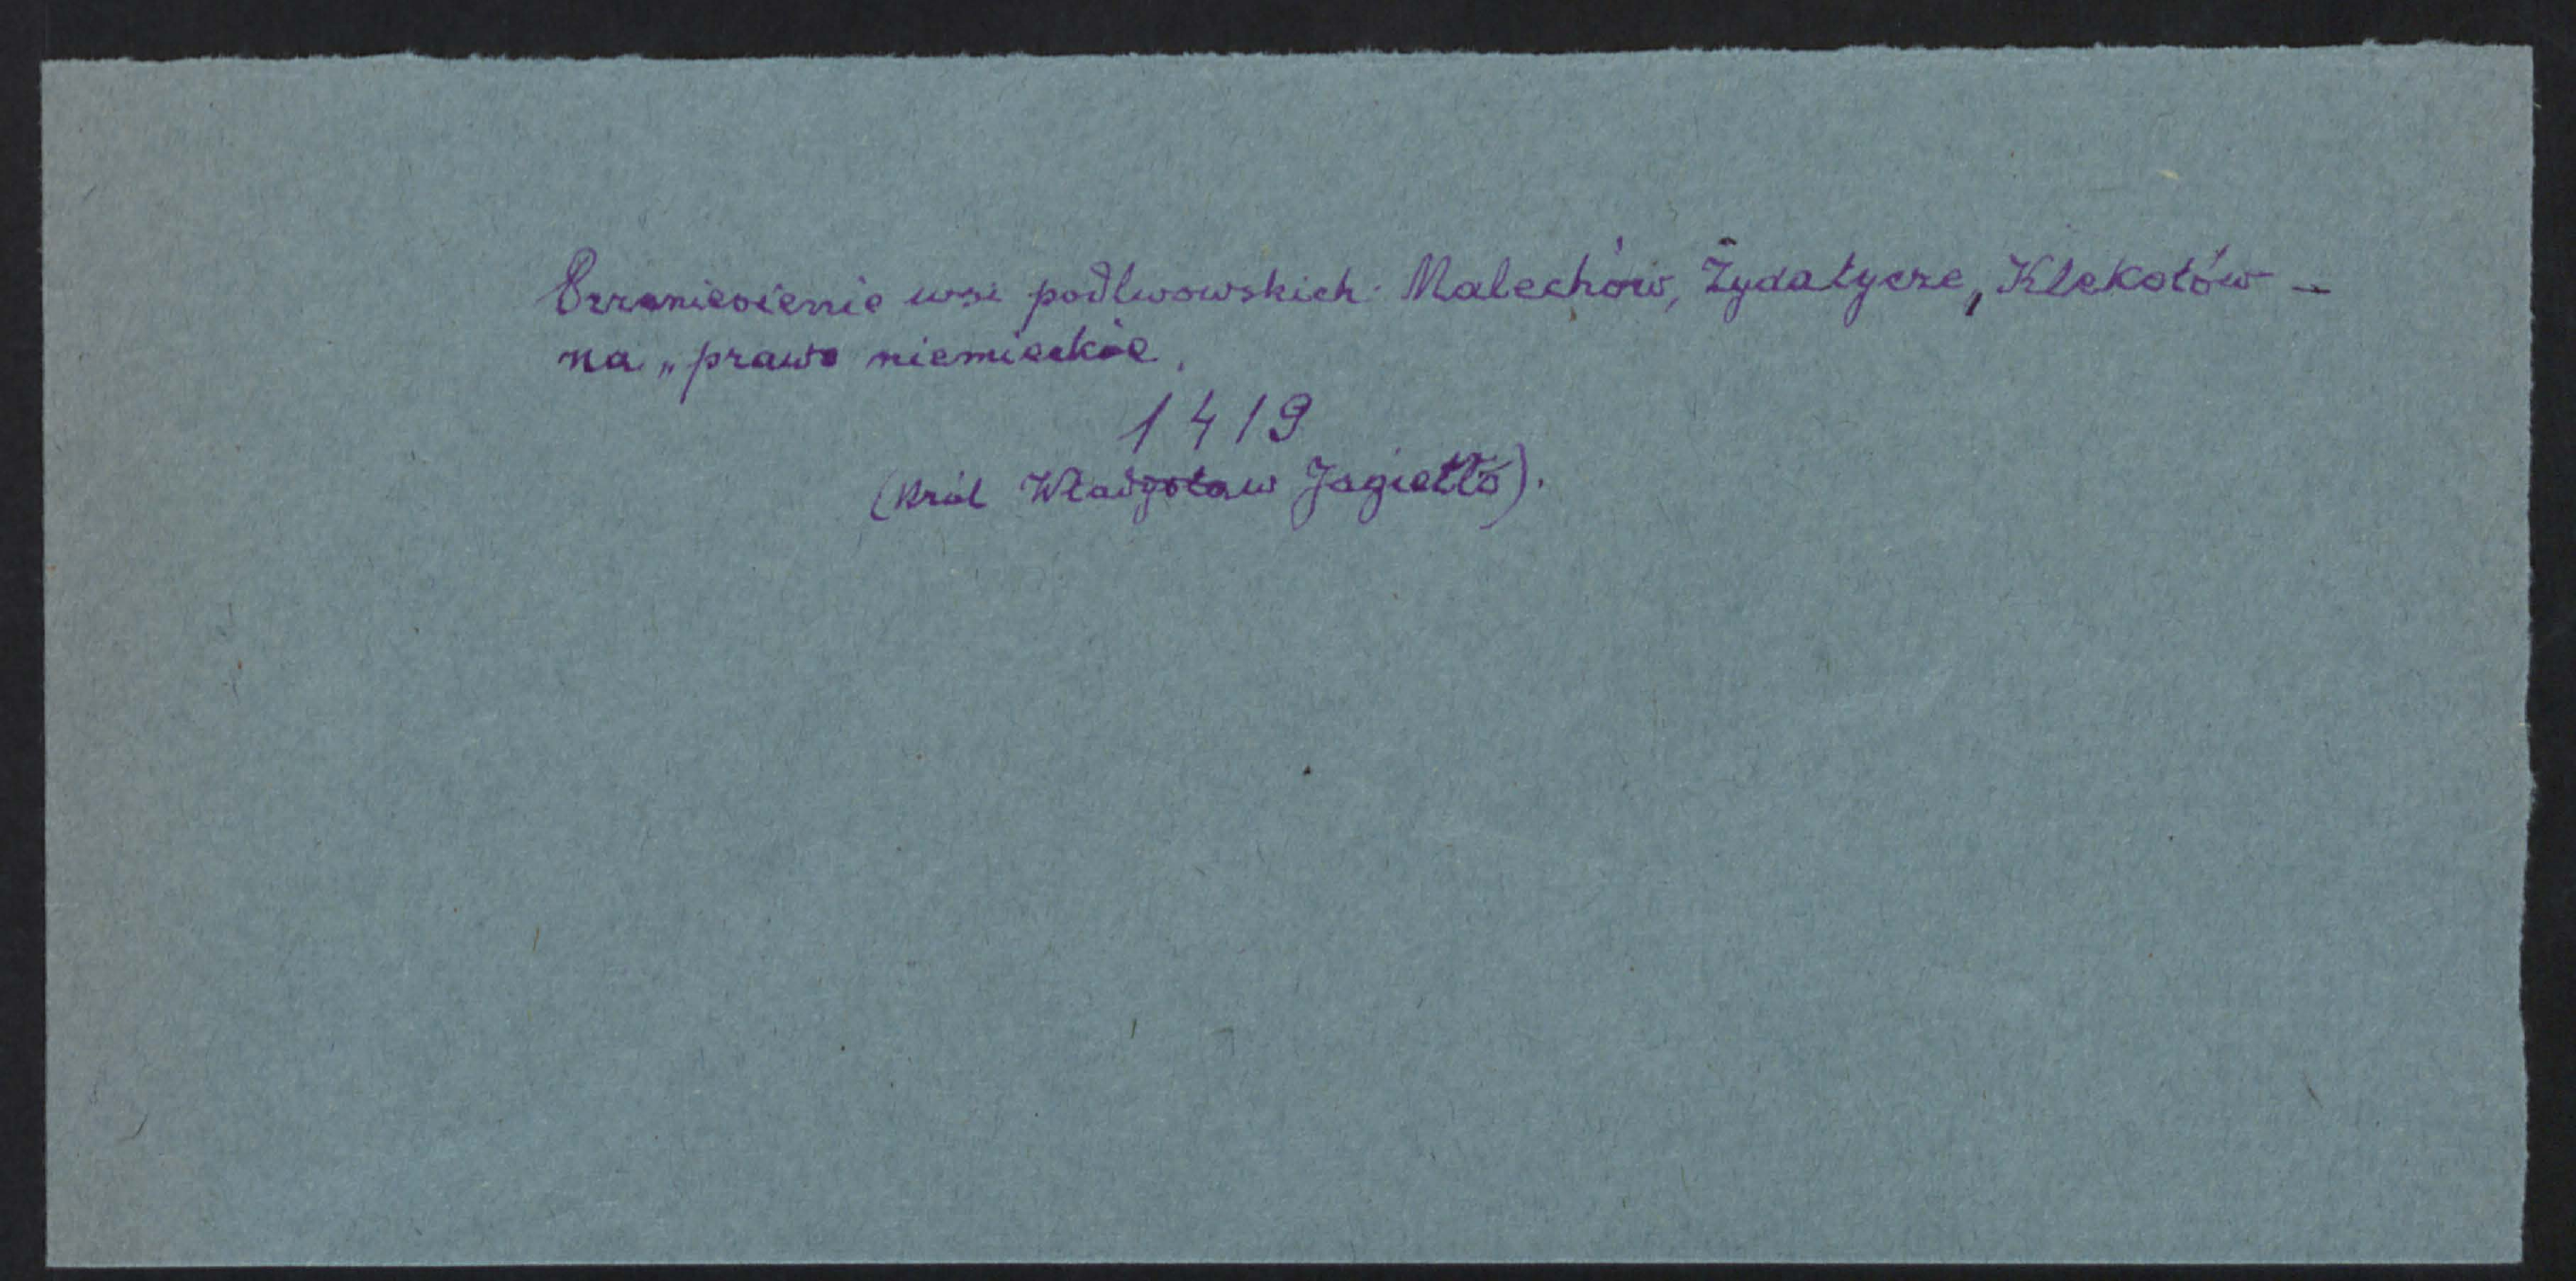 Przeniesienie wsi podlwowskich: Malechów, Żydatycze, Klekotów –
na „prawo niemieckie.
1419
(Król Władysław Jagiełło).